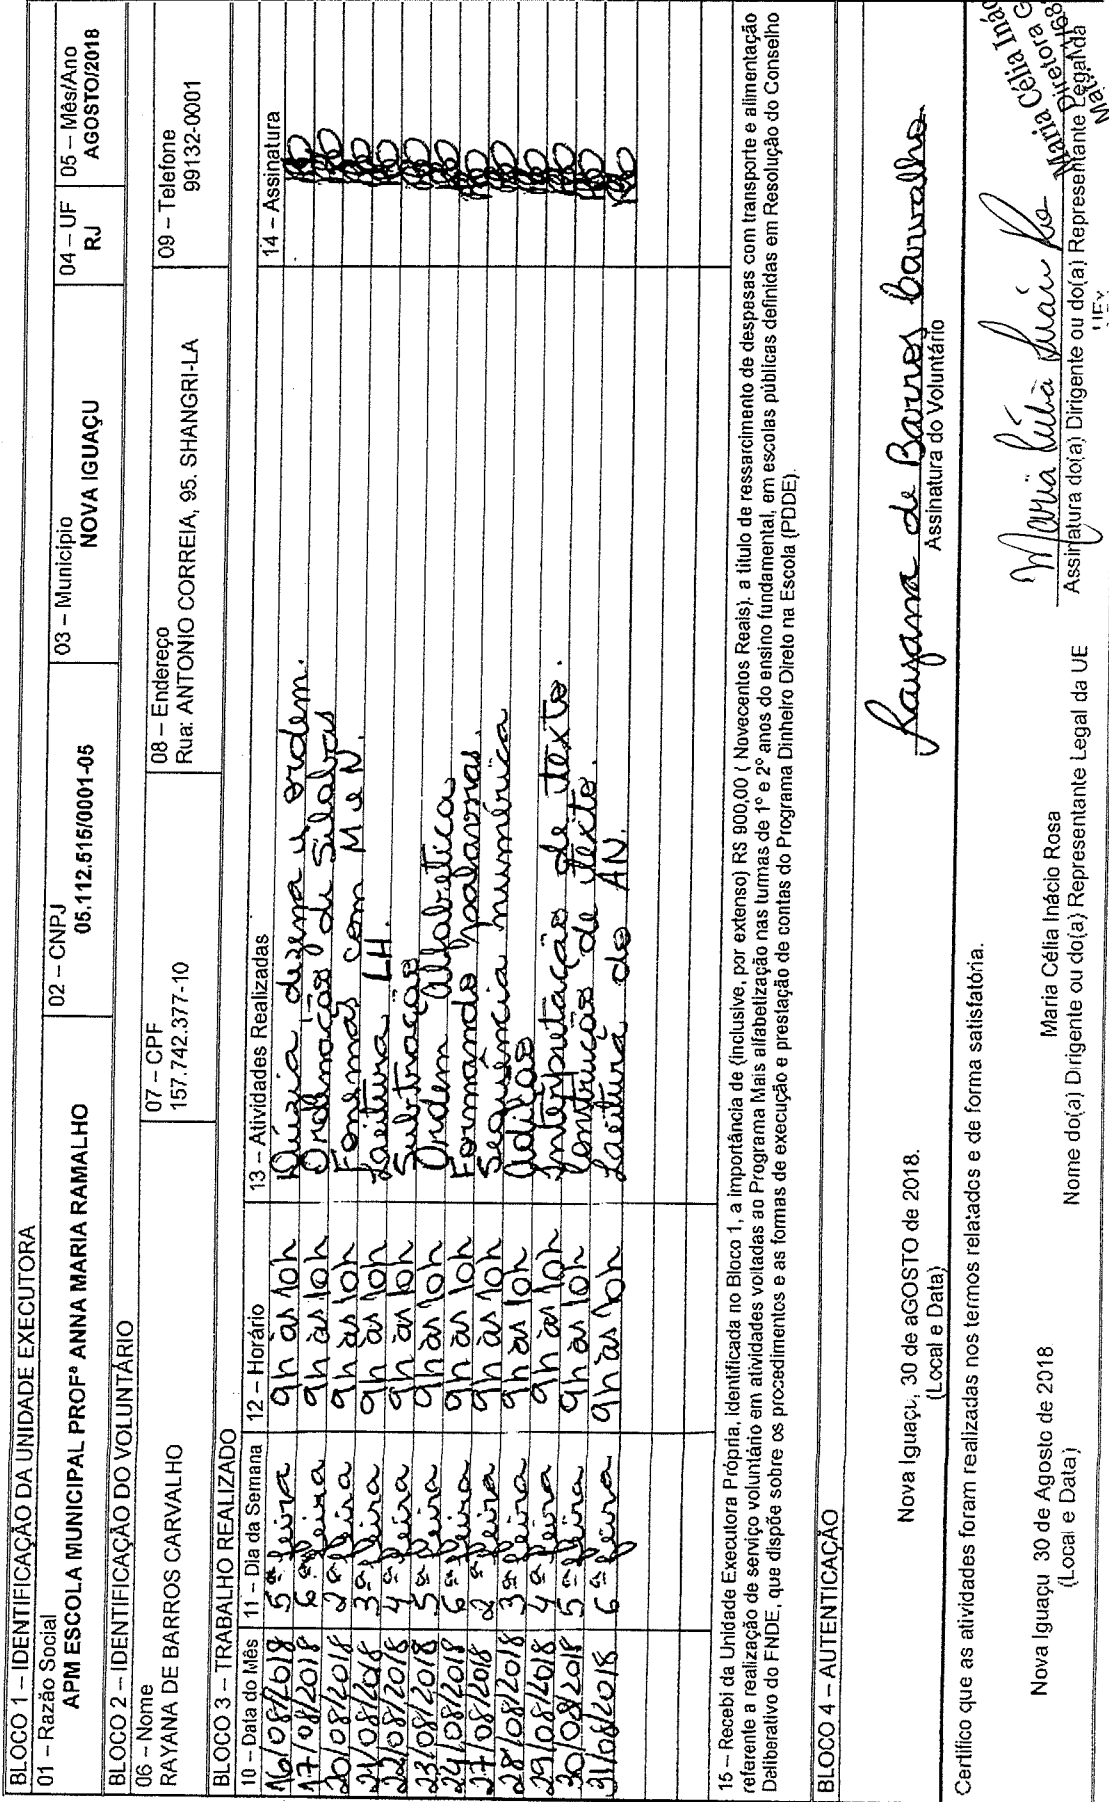 BLOCO 1 – IDENTIFICAÇÃO DA UNIDADE EXECUTORA
01 – Razão Social
APM ESCOLA MUNICIPAL PROFª ANNA MARIA RAMALHO
02 – CNPJ
05.112.515/0001-05
03 – Município
NOVA IGUAÇU
04 – UF
RJ
05 – Mês/Ano
AGOSTO/2018
BLOCO 2 – IDENTIFICAÇÃO DO VOLUNTÁRIO
06 – Nome
RAYANA DE BARROS CARVALHO
07 – CPF
157.742.377-10
08 – Endereço
Rua: ANTONIO CORREIA, 95. SHANGRI-LA
09 – Telefone
99132-0001
BLOCO 3 – TRABALHO REALIZADO
10 – Data do Mês 11 – Dia da Semana 12 – Horário 13 – Atividades Realizadas 14 – Assinatura
16/08/2018 5ª feira 9h às 10h Dúzia dezena u ordem.
17/08/2018 6ª feira 9h às 10h Ordenação de Silabas
20/08/2018 2ª feira 9h às 10h Fonemas com M e N.
21/08/2018 3ª feira 9h às 10h Leitura LH.
22/08/2018 4ª feira 9h às 10h Subtração
23/08/2018 5ª feira 9h às 10h Ordem Alfabetica
24/08/2018 6ª feira 9h às 10h Formando palavras.
27/08/2018 2ª feira 9h às 10h Sequência numérica
28/08/2018 3ª feira 9h às 10h adição
29/08/2018 4ª feira 9h às 10h Interpretação de texto.
30/08/2018 5ª feira 9h às 10h Contrução de texto.
31/08/2018 6ª feira 9h às 10h Leitura do AN.
15 – Recebi da Unidade Executora Própria, identificada no Bloco 1, a importância de (inclusive, por extenso) R$ 900,00 ( Novecentos Reais), a título de ressarcimento de despesas com transporte e alimentação
referente a realização de serviço voluntário em atividades voltadas ao Programa Mais alfabetização nas turmas de 1º e 2º anos do ensino fundamental, em escolas públicas definidas em Resolução do Conselho
Deliberativo do FNDE, que dispõe sobre os procedimentos e as formas de execução e prestação de contas do Programa Dinheiro Direto na Escola (PDDE).
BLOCO 4 – AUTENTICAÇÃO
Nova Iguaçu, 30 de aGOSTO de 2018.
(Local e Data)
Rayana de Barros Carvalho
Assinatura do Voluntário
Certifico que as atividades foram realizadas nos termos relatados e de forma satisfatória.
Nova Iguaçu 30 de Agosto de 2018
(Local e Data)
Maria Célia Inácio Rosa
Nome do(a) Dirigente ou do(a) Representante Legal da UE
Maria Célia Inác
Diretora G
Assinatura do(a) Dirigente ou do(a) Representante Legal da
UEx